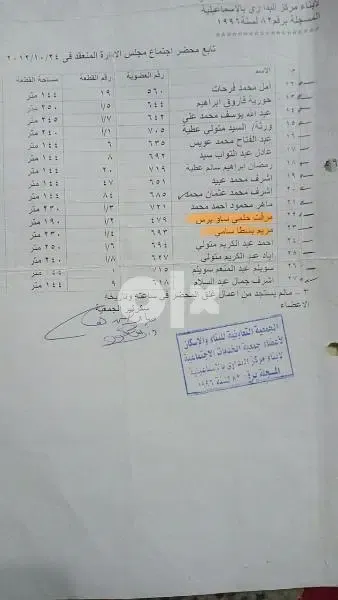 لأبناء مركز البداري بالاسماعيلية
المسجلة برقم ٨٢ لسنة ١٩٩٦
تابع محضر اجتماع مجلس الادارة المنعقد فى ٢٠١٢/١٠/٢٤
م الاسم رقم العضوية رقم القطعة مساحة القطعة
أمل محمد فرحات ٥٦٠ ١٩ ١٤٤ متر
حورية فاروق ابراهيم ٦٤٤ ١/٥ ٢٥٠ متر
عبد الله يوسف محمد على ٦٤٢ ١/٧ ٢٤٥ متر
ورثة/ السيد متولى عطية ٧٠٥ ١/١ ٢٤٠ متر
عبد الفتاح محمد عويس ٦٣٥ ٦ ١٤٤ متر
عادل عبد التواب سيد ٦٩٢ ٨ ١٤٤ متر
رمضان ابراهيم سالم عطية ٧١٩ ٢٠ ١٤٤ متر
اشرف محمد عبيد ٦٥١ ٤٧ ١٤٤ متر
اشرف محمد عثمان محمد ٦٨٥ ٨٤ ١٤٤ متر
ماهر محمود احمد محمد ٧٢١ ١/٣ ٢٣٠ متر
مرفت حلمي ساويرس ٤٧٩ ١/٢ ١٩٠ متر
مريم بسطا سامى ٦٩٣ ١/٤ ٢٣٠ متر
احمد عبد الكريم متولى ٦٩٤ ١/٦ ٢٥٠ متر
اياد عبد الكريم متولى ٦٢٧ ١/٨ ٢٤٠ متر
سويلم عبد المنعم سويلم ٧١٥ ١٤٤ متر
اشرف جمال عبد السلام ١٤٤ متر
٣ - مالم يستجد من اعمال غلق المحضر فى ساعته وتاريخه
الاعضاء سكرتير الجمعية
الجمعية التعاونية للبناء والاسكان
لأعضاء جمعية الخدمات الاجتماعية
لأبناء مركز البداري بالاسماعيلية
المسجلة برقم ٨٢ لسنة ١٩٩٦